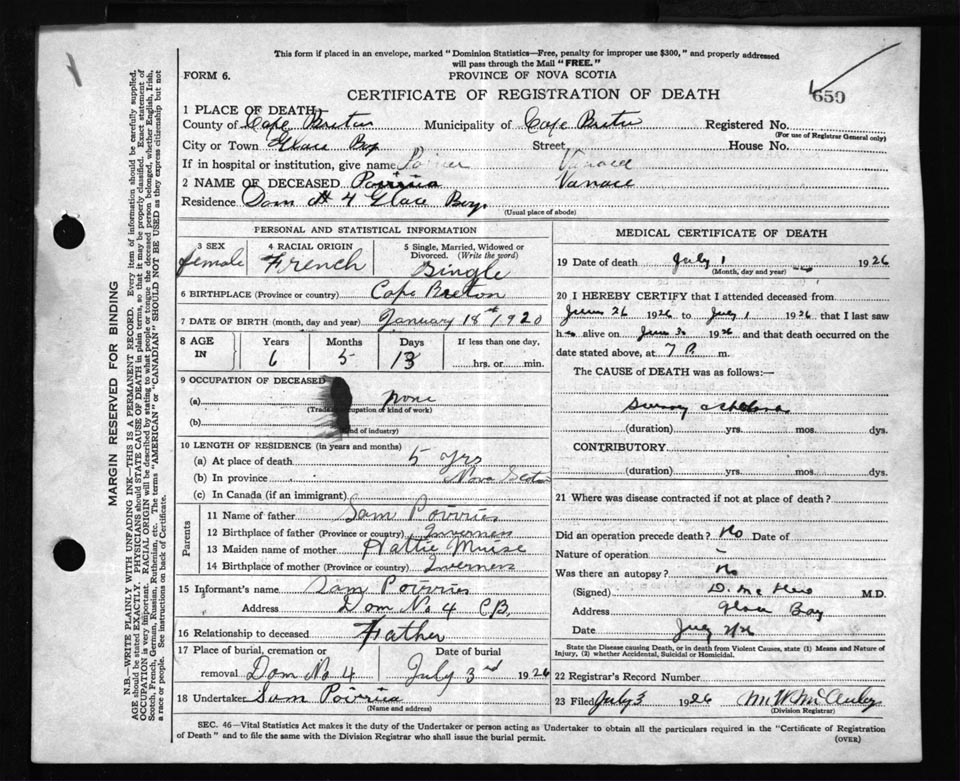 This form if placed in an envelope, marked "Dominion Statistics—Free, penalty for improper use $300," and properly addressed
will pass through the Mail "FREE."
FORM 6.
PROVINCE OF NOVA SCOTIA
CERTIFICATE OF REGISTRATION OF DEATH
659
1 PLACE OF DEATH
County of Cape Breton Municipality of Cape Breton Registered No.
(For use of Registrar General only)
City or Town Glace Bay Street House No.
If in hospital or institution, give name
2 NAME OF DECEASED
Residence Dom # 4 Glace Bay
(Usual place of abode)
PERSONAL AND STATISTICAL INFORMATION
3 SEX
female
4 RACIAL ORIGIN
French
5 Single, Married, Widowed or Divorced. (Write the word)
Single
6 BIRTHPLACE (Province or country) Cape Breton
7 DATE OF BIRTH (month, day and year) January 18th 1920
8 AGE IN
Years Months Days If less than one day,
6 5 13 hrs. or min.
9 OCCUPATION OF DECEASED
(a) none
(Trade occupation or kind of work)
(b)
(kind of industry)
10 LENGTH OF RESIDENCE (in years and months)
(a) At place of death 5 yrs
(b) In province Nova Scotia
(c) In Canada (if an immigrant)
Parents
11 Name of father Sam
12 Birthplace of father (Province or country) Inverness
13 Maiden name of mother Hattie Muise
14 Birthplace of mother (Province or country) Inverness
15 Informant's name Sam
Address Dom No 4 CB
16 Relationship to deceased Father
17 Place of burial, cremation or removal Dom No. 4
Date of burial
July 3rd 1926
18 Undertaker Sam
(Name and address)
MEDICAL CERTIFICATE OF DEATH
19 Date of death July 1 1926
(Month, day and year)
20 I HEREBY CERTIFY that I attended deceased from
June 26 1926 to July 1 1926 that I last saw
h alive on June 30 1926 and that death occurred on the
date stated above, at 7 P. m.
The CAUSE of DEATH was as follows:—
(duration) yrs. mos. dys.
CONTRIBUTORY
(duration) yrs. mos. dys.
21 Where was disease contracted if not at place of death?
Did an operation precede death? No Date of
Nature of operation –
Was there an autopsy? No
(Signed) M.D.
Address Glace Bay
Date July 2/26
State the Disease causing Death, or in death from Violent Causes, state (1) Means and Nature of
Injury, (2) whether Accidental, Suicidal or Homicidal.
22 Registrar's Record Number
23 Filed July 3 1926
(Division Registrar)
SEC. 46—Vital Statistics Act makes it the duty of the Undertaker or person acting as Undertaker to obtain all the particulars required in the "Certificate of Registration
of Death" and to file the same with the Division Registrar who shall issue the burial permit.
(OVER)
MARGIN RESERVED FOR BINDING
N.B.—WRITE PLAINLY WITH UNFADING INK—THIS IS A PERMANENT RECORD. Every item of information should be carefully supplied.
AGE should be stated EXACTLY. PHYSICIANS should STATE CAUSE OF DEATH in plain terms, so that it may be properly classified. Exact statement of
OCCUPATION is very important. RACIAL ORIGIN will be described by stating to what people or tongue the deceased person belonged, whether English, Irish,
Scotch, French, German, Russian, Ruthenian, etc. The terms "AMERICAN" or "CANADIAN" SHOULD NOT BE USED as they express citizenship but not
a race or people. See instructions on back of Certificate.